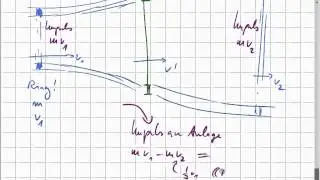 Impuls
m v₁
v₀
v'
Impuls
m v₂
v₂
Ring!
m
v₁
Impuls an Anlage
m v₁ - m v₂ =